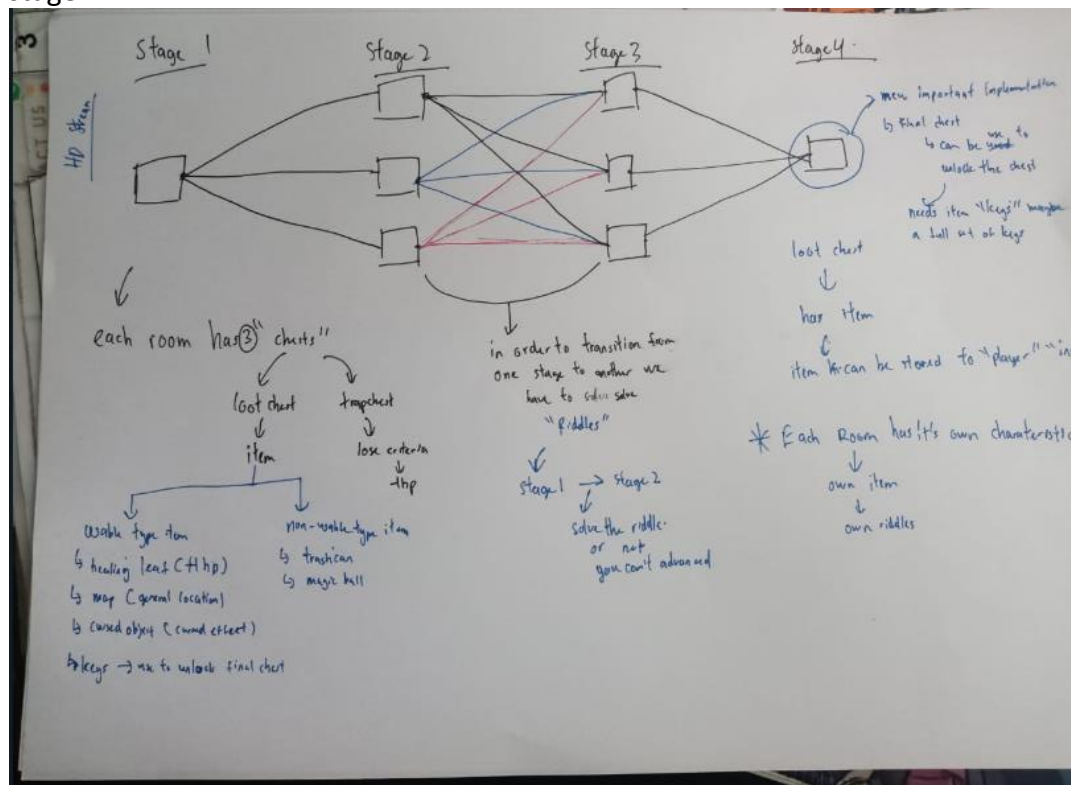 stage
3
CT US
HD stream
Stage 1
Stage 2
Stage 3
Stage 4.
each room has 3 "chests"
loot chest
item
trapchest
lose criteria
-hp
usable type item
healing leaf (+hp)
map (general location)
cursed object (cursed effect)
keys → use to unlock final chest
non-usable type item
trashcan
magic ball
in order to transition from
one stage to another we
have to solve solve
"Riddles"
stage 1 → stage 2
solve the riddle.
or not
you can't advanced
important implementation
final chest
can be use to
unlock the chest
needs item "keys"
a full set of keys
loot chest
has item
item can be stored to "player" "in
* Each Room has it's own
own item
own riddles